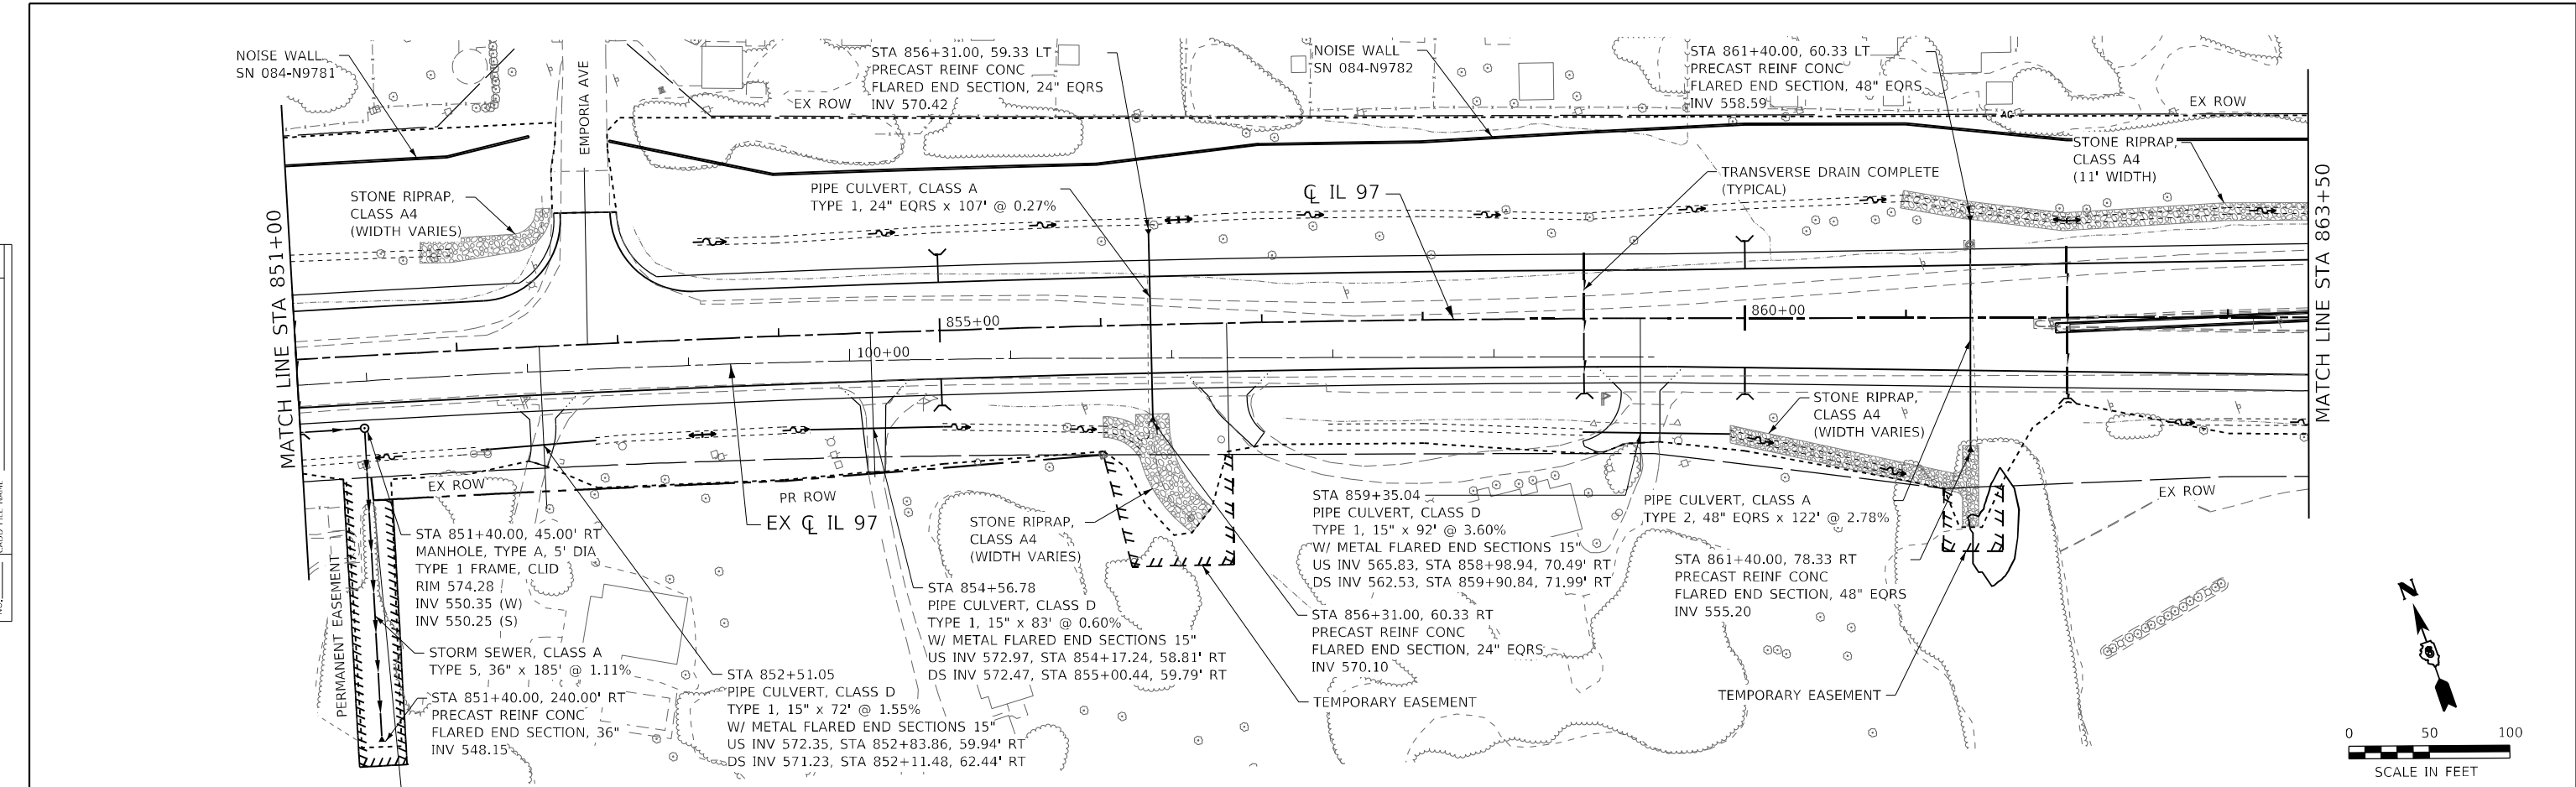 NOISE WALL
SN 084-N9781
EMPORIA AVE
EX ROW
STA 856+31.00, 59.33 LT
PRECAST REINF CONC
FLARED END SECTION, 24" EQRS
INV 570.42
NOISE WALL
SN 084-N9782
STA 861+40.00, 60.33 LT
PRECAST REINF CONC
FLARED END SECTION, 48" EQRS
INV 558.59
EX ROW
AC
STONE RIPRAP,
CLASS A4
(11' WIDTH)
STONE RIPRAP,
CLASS A4
(WIDTH VARIES)
PIPE CULVERT, CLASS A
TYPE 1, 24" EQRS x 107' @ 0.27%
℄ IL 97
TRANSVERSE DRAIN COMPLETE
(TYPICAL)
MATCH LINE STA 851+00
MATCH LINE STA 863+50
855+00
860+00
100+00
STONE RIPRAP,
CLASS A4
(WIDTH VARIES)
EX ROW
PR ROW
EX ℄ IL 97
EX ROW
PERMANENT EASEMENT
STA 851+40.00, 45.00' RT
MANHOLE, TYPE A, 5' DIA
TYPE 1 FRAME, CLID
RIM 574.28
INV 550.35 (W)
INV 550.25 (S)
STORM SEWER, CLASS A
TYPE 5, 36" x 185' @ 1.11%
STA 851+40.00, 240.00' RT
PRECAST REINF CONC
FLARED END SECTION, 36"
INV 548.15
STA 852+51.05
PIPE CULVERT, CLASS D
TYPE 1, 15" x 72' @ 1.55%
W/ METAL FLARED END SECTIONS 15"
US INV 572.35, STA 852+83.86, 59.94' RT
DS INV 571.23, STA 852+11.48, 62.44' RT
STONE RIPRAP,
CLASS A4
(WIDTH VARIES)
STA 854+56.78
PIPE CULVERT, CLASS D
TYPE 1, 15" x 83' @ 0.60%
W/ METAL FLARED END SECTIONS 15"
US INV 572.97, STA 854+17.24, 58.81' RT
DS INV 572.47, STA 855+00.44, 59.79' RT
STA 859+35.04
PIPE CULVERT, CLASS D
TYPE 1, 15" x 92' @ 3.60%
W/ METAL FLARED END SECTIONS 15"
US INV 565.83, STA 858+98.94, 70.49' RT
DS INV 562.53, STA 859+90.84, 71.99' RT
STA 856+31.00, 60.33 RT
PRECAST REINF CONC
FLARED END SECTION, 24" EQRS
INV 570.10
TEMPORARY EASEMENT
PIPE CULVERT, CLASS A
TYPE 2, 48" EQRS x 122' @ 2.78%
STA 861+40.00, 78.33 RT
PRECAST REINF CONC
FLARED END SECTION, 48" EQRS
INV 555.20
TEMPORARY EASEMENT
N
0 50 100
SCALE IN FEET